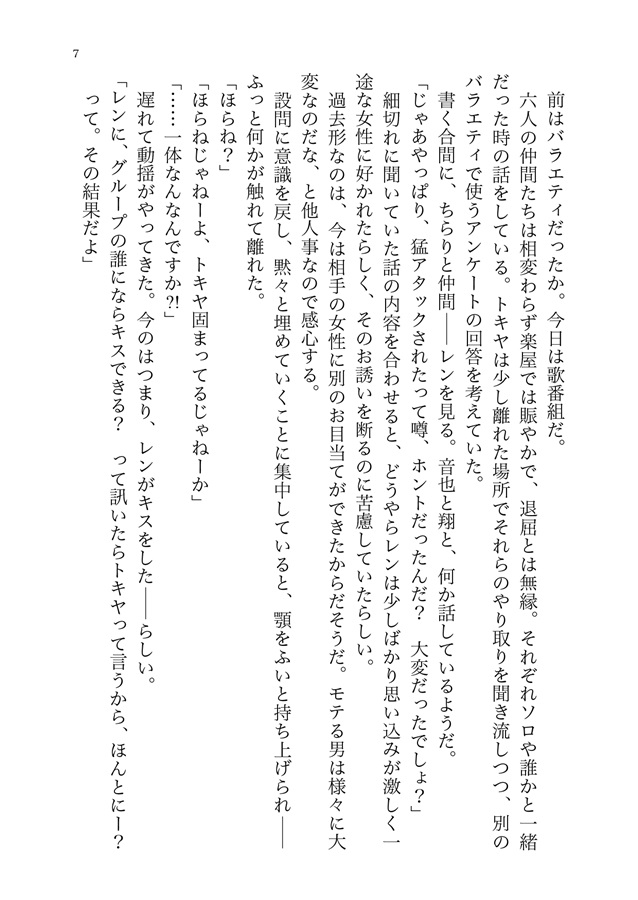 7
前はバラエティだったか。今日は歌番組だ。
六人の仲間たちは相変わらず楽屋では賑やかで、退屈とは無縁。それぞれソロや誰かと一緒
だった時の話をしている。トキヤは少し離れた場所でそれらのやり取りを聞き流しつつ、別の
バラエティで使うアンケートの回答を考えていた。
書く合間に、ちらりと仲間――レンを見る。音也と翔と、何か話しているようだ。
「じゃあやっぱり、猛アタックされたって噂、ホントだったんだ？　大変だったでしょ？」
細切れに聞いていた話の内容を合わせると、どうやらレンは少しばかり思い込みが激しく一
途な女性に好かれたらしく、そのお誘いを断るのに苦慮していたらしい。
過去形なのは、今は相手の女性に別のお目当てができたからだそうだ。モテる男は様々に大
変なのだな、と他人事なので感心する。
設問に意識を戻し、黙々と埋めていくことに集中していると、顎をふいと持ち上げられ――
ふっと何かが触れて離れた。
「ほらね？」
「ほらねじゃねーよ、トキヤ固まってるじゃねーか」
「……一体なんなんですか?!」
遅れて動揺がやってきた。今のはつまり、レンがキスをした――らしい。
「レンに、グループの誰にならキスできる？　って訊いたらトキヤって言うから、ほんとにー？
って。その結果だよ」